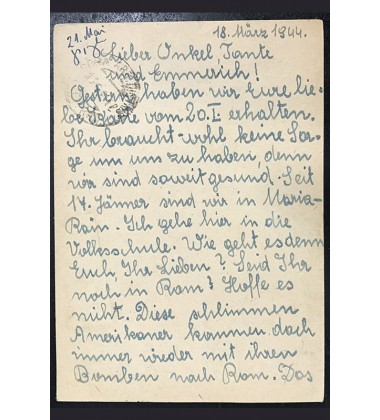 21. Mai
18. März 1944.
Lieber Onkel, Tante
und Emmerich!
Gestern haben wir Eure lie-
be Karte vom 20.I erhalten.
Ihr braucht wohl keine Sor-
ge um uns zu haben, denn
wir sind soweit gesund. Seit
14. Jänner sind wir in Maria-
Rain. Ich gehe hier in die
Volksschule. Wie geht es denn
Euch, Ihr Lieben? Seid Ihr
noch in Rom? Hoffe es
niht. Diese schlimmen
Amerikaner kommen doch
immer wieder mit ihren
Bomben nach Rom. Das